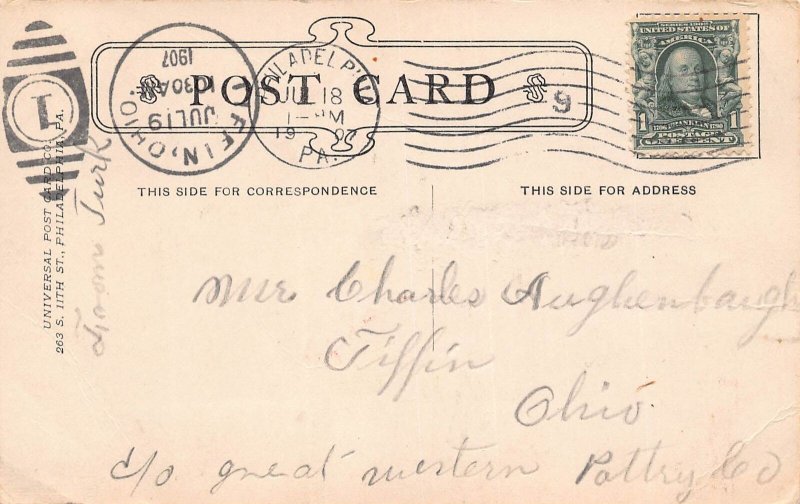 POST CARD
TIFFIN, OHIO.
JUL 19
30 AM
1907
PHILADELPHIA
JUL 18
1-PM
1907
PA.
6
1
SERIES 1902
UNITED STATES OF AMERICA
1706 FRANKLIN 1790
1 1
POSTAGE
ONE CENT
THIS SIDE FOR CORRESPONDENCE
THIS SIDE FOR ADDRESS
UNIVERSAL POST CARD CO.
263 S. 11TH ST., PHILADELPHIA, PA.
From Turk
Mr Charles Aughenbaugh
Tiffin
Ohio
c/o great western Pottry Co